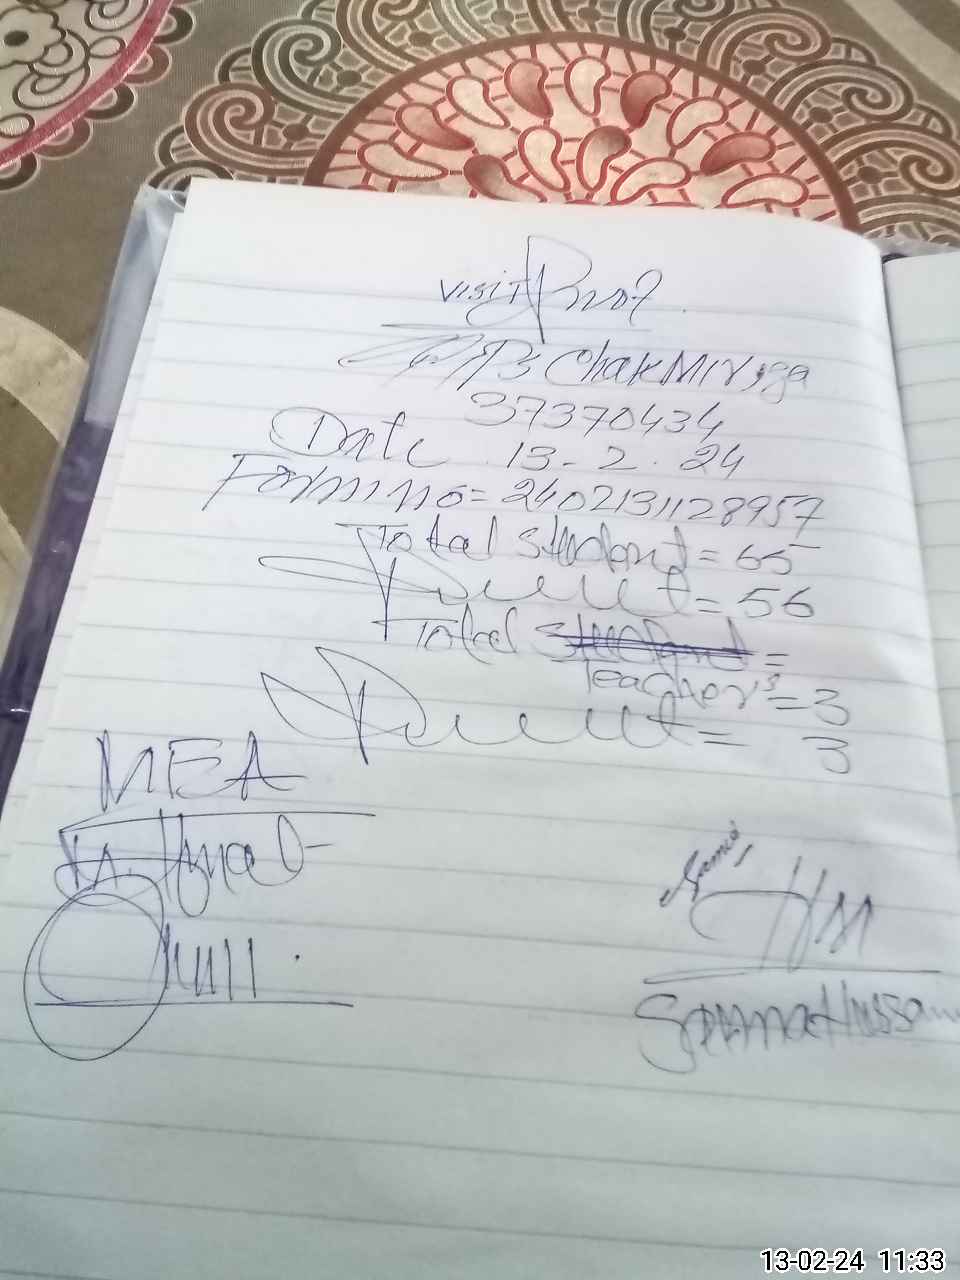 Visit Proof
GPS Chak Mirzga
37370434
Date 13-2.24
Form no = 2402131128957
Total student = 65
Present = 56
Total student =
Teachers = 3
Present = 3
MEA
HM
Hussain
13-02-24 11:33